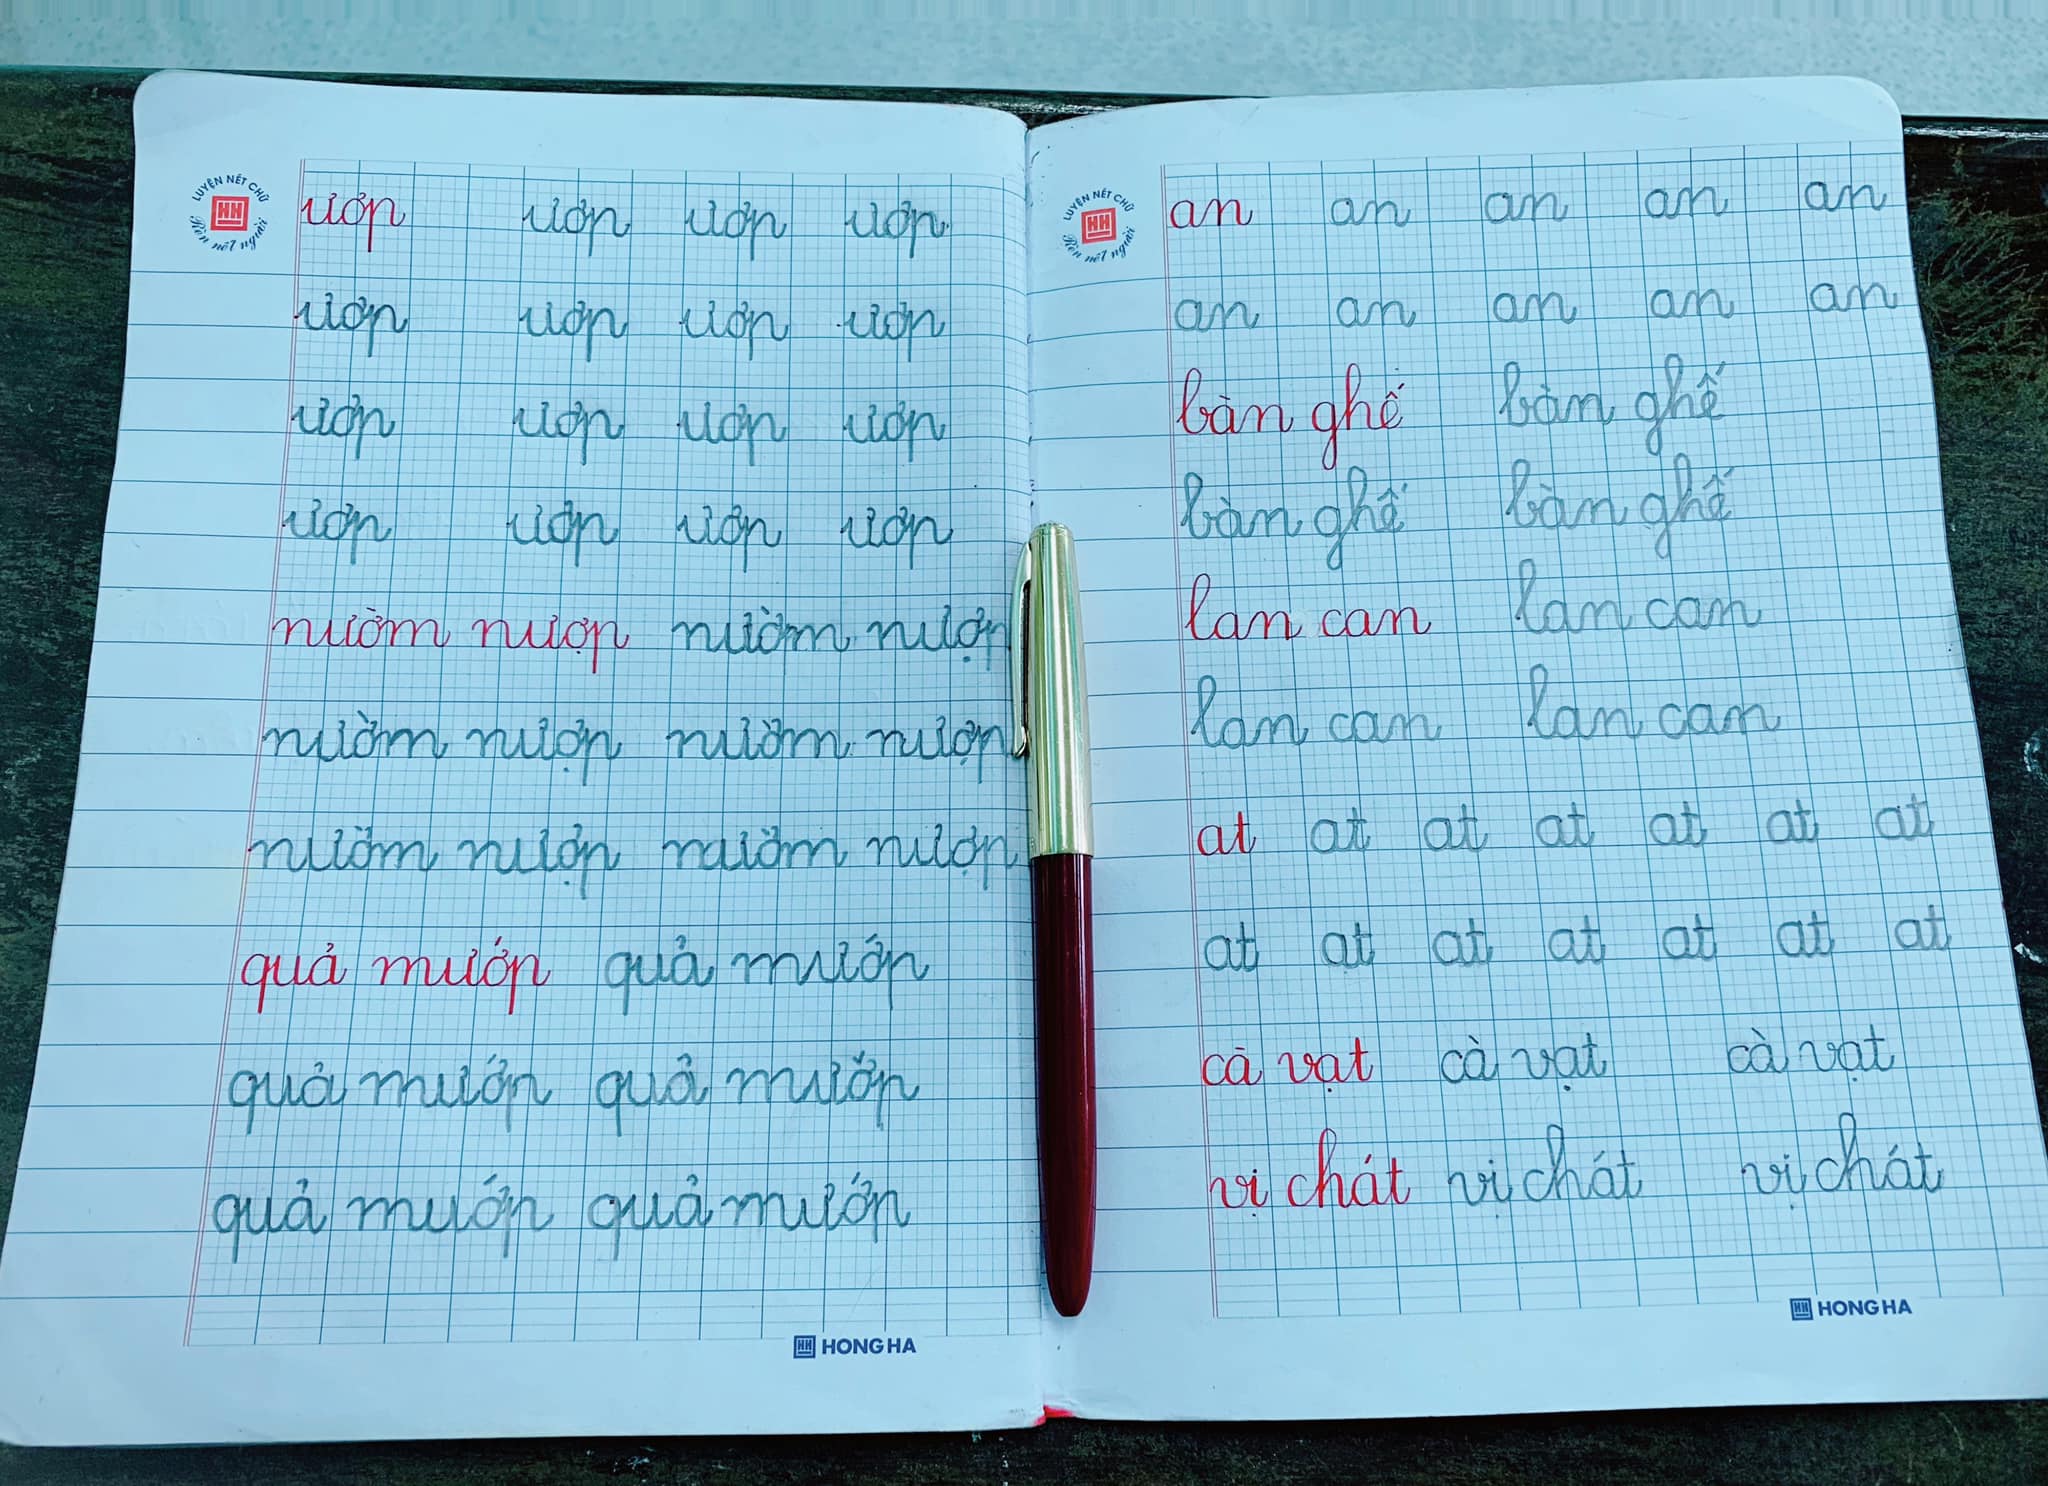 LUYỆN NÉT CHỮ
Rèn nết người
ươp ươp ươp ươp
ươp ươp ươp ươp
ươp ươp ươp ươp
ươp ươp ươp ươp
nườm nượp nườm nượp
nườm nượp nườm nượp
nườm nượp nườm nượp
quả mướp quả mướp
quả mướp quả mướp
quả mướp quả mướp
HONG HA
LUYỆN NÉT CHỮ
Rèn nết người
an an an an an
an an an an an
bàn ghế bàn ghế
bàn ghế bàn ghế
lan can lan can
lan can lan can
at at at at at at at
at at at at at at at
cà vạt cà vạt cà vạt
vị chát vị chát vị chát
HONG HA